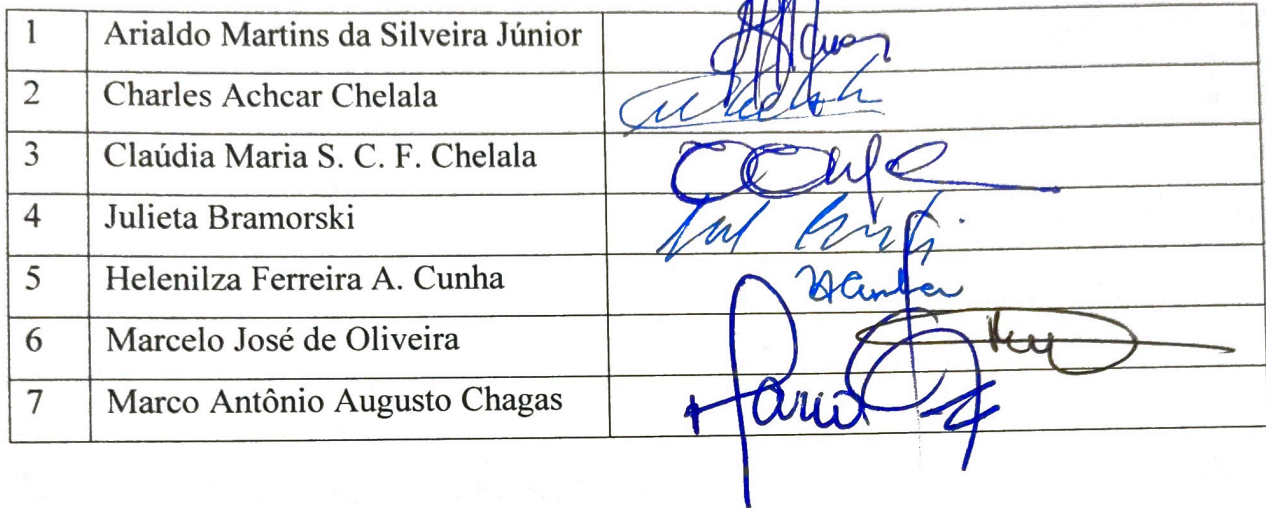 1 Arialdo Martins da Silveira Júnior
2 Charles Achcar Chelala
3 Claúdia Maria S. C. F. Chelala
4 Julieta Bramorski
5 Helenilza Ferreira A. Cunha
6 Marcelo José de Oliveira
7 Marco Antônio Augusto Chagas